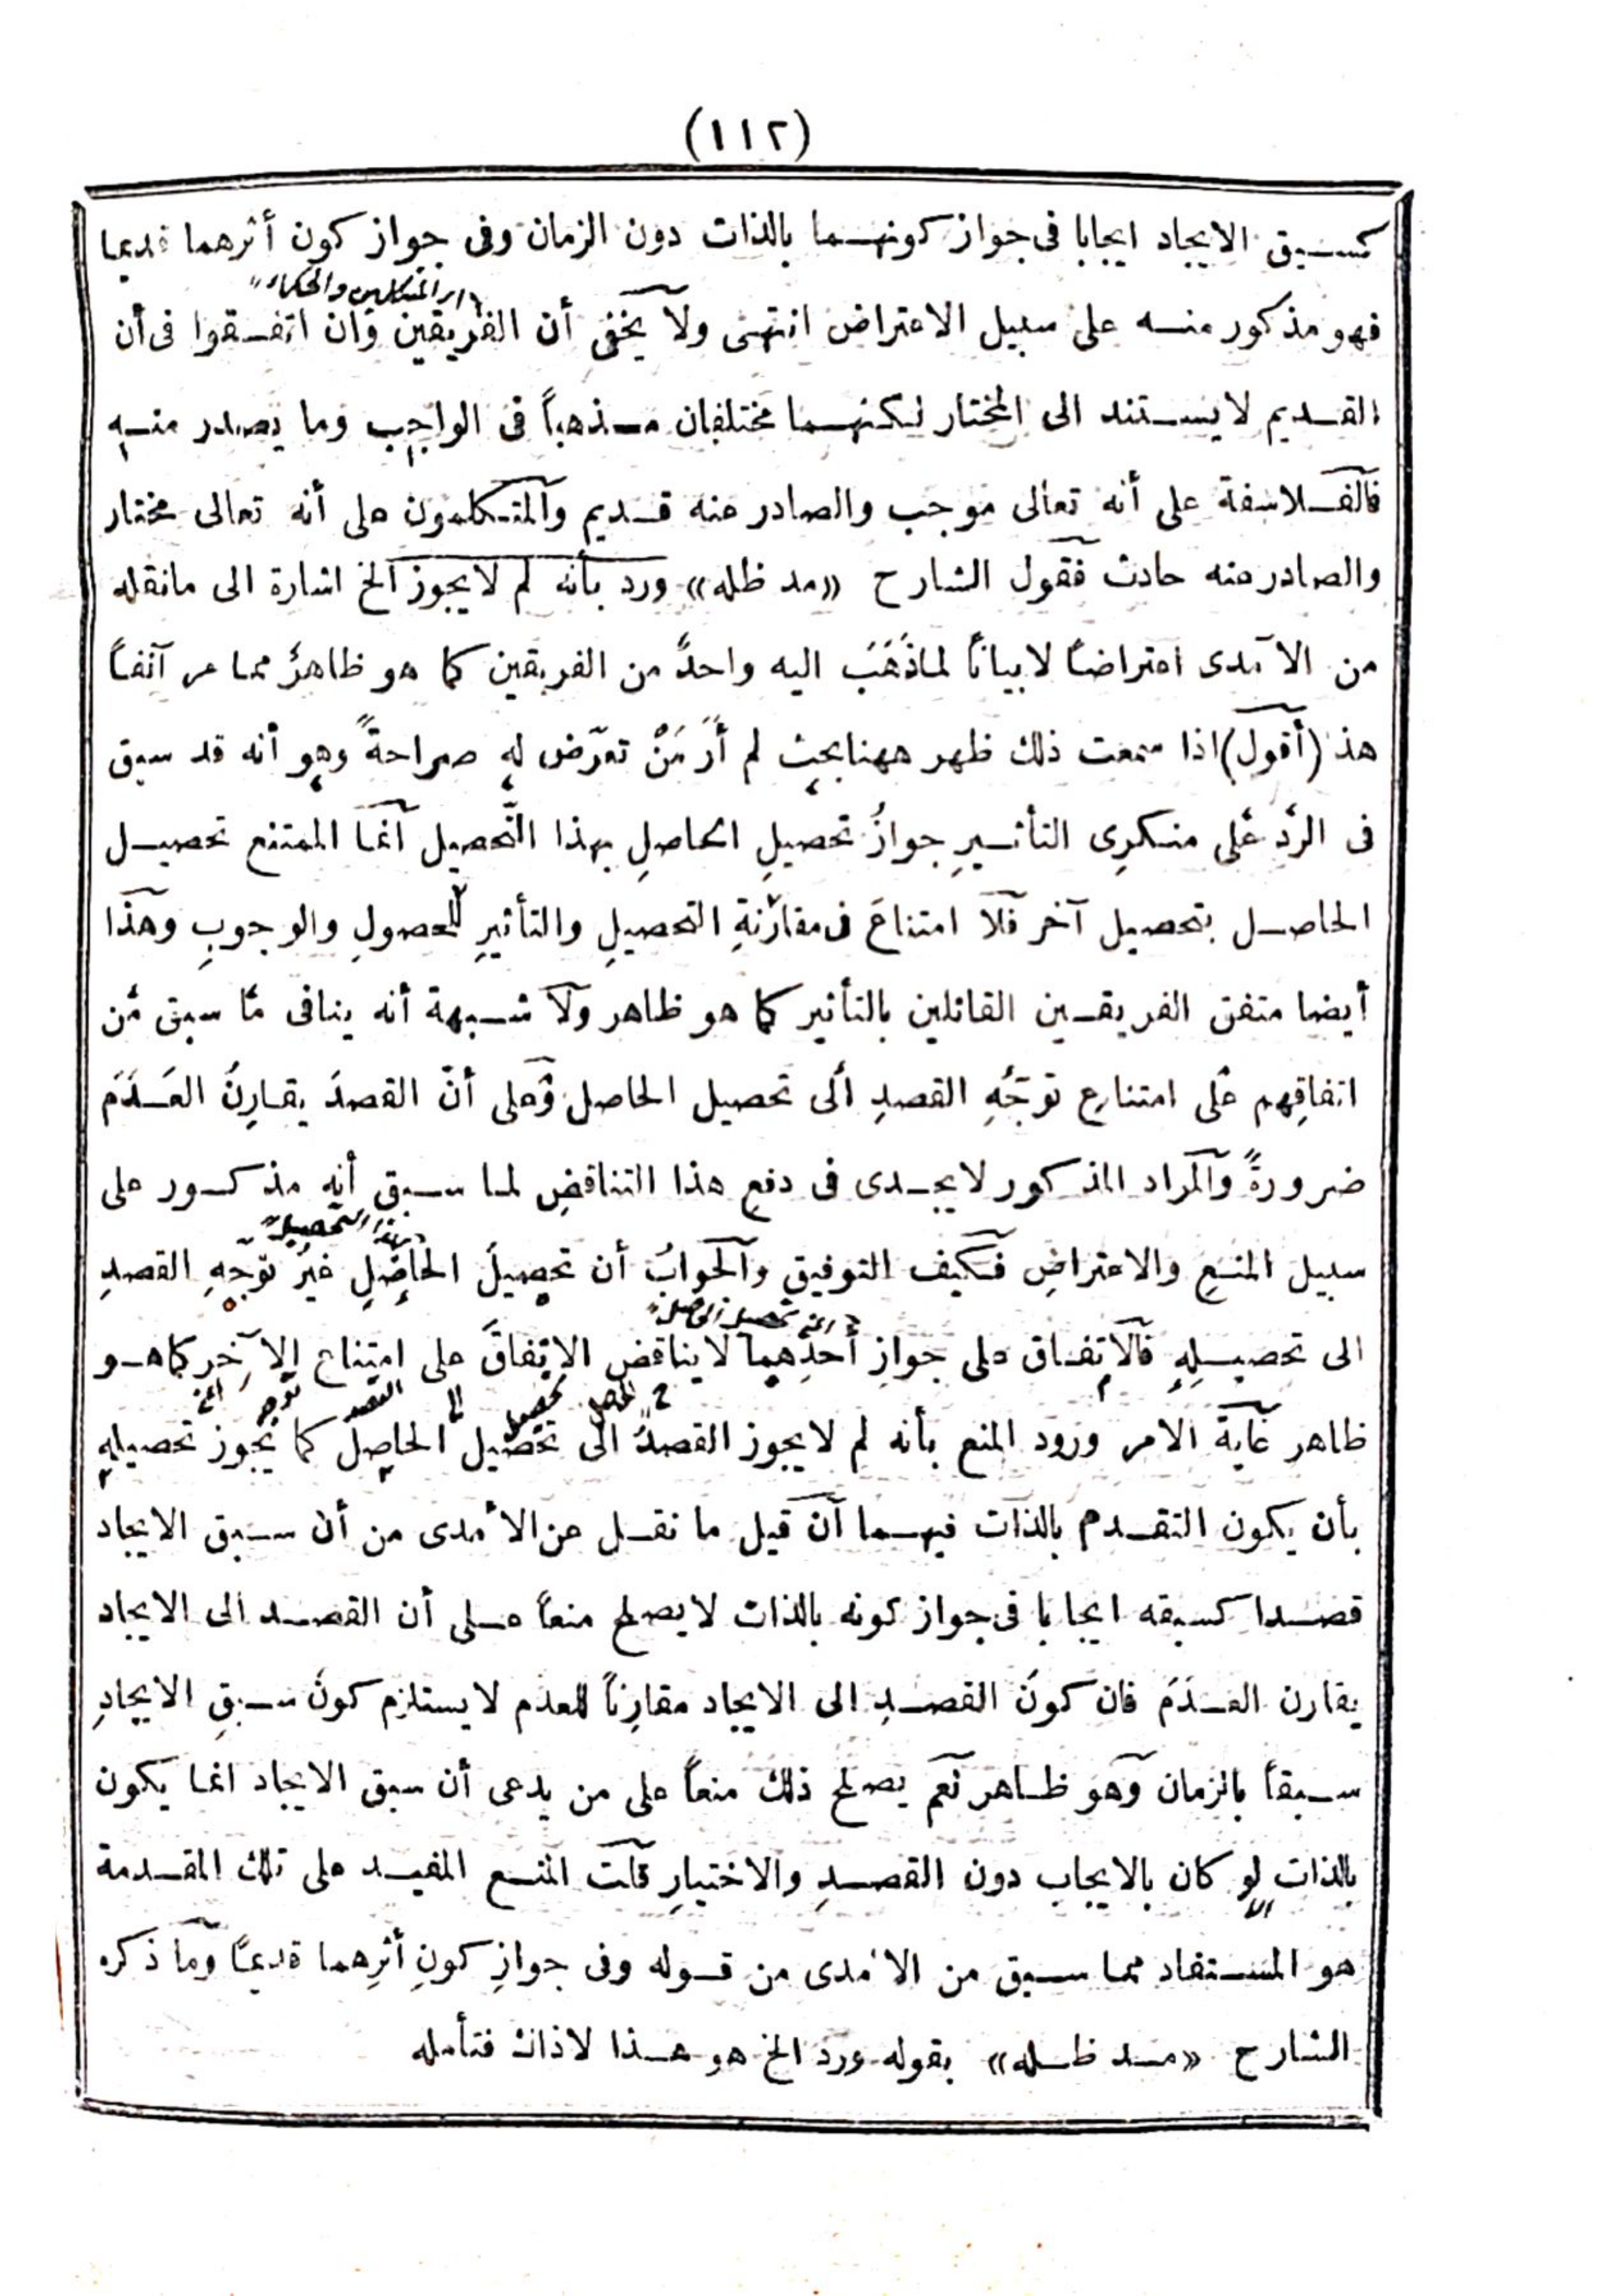 (١١٢)
كسبق الايجاد ايجابا فى جواز كونهما بالذات دون الزمان وفى جواز كون أثرهما قديما
اى المتكلمين والحكماء
فهو مذكور منه على سبيل الاعتراض انتهى ولا يخفى أن الفريقين وان اتفقوا فى أن
القديم لا يستند الى المختار لكنهما مختلفان مذهباً فى الواجب وما يصدر منه
فالفلاسفة على أنه تعالى موجب والصادر منه قديم والمتكلمون على أنه تعالى مختار
والصادر منه حادث فقول الشارح «مد ظله» ورد بأنه لم لا يجوز الخ اشارة الى ما نقله
من الآمدى اعتراضاً لا بياناً لما ذَهَبَ اليه واحدٌ من الفريقين كما هو ظاهرٌ مما مر آنفاً
هذا (أقول) اذا سمعت ذلك ظهر ههنا بحث لم أَرَ مَنْ تعرّض له صراحةً وهو أنه قد سبق
فى الردّ على منكرِى التأثيرِ جوازُ تحصيلِ الحاصلِ بهذا التّحصيل انما الممتنع تحصيل
الحاصل بتحصيل آخر فلا امتناعَ فى مقارنةِ التحصيلِ والتأثيرِ للحصولِ والوجوبِ وهذا
أيضا متفق الفريقين القائلين بالتأثير كما هو ظاهر ولا شبهة أنه ينافى ما سبق من
اتفاقِهم على امتناع توجّهِ القصدِ الى تحصيل الحاصل وعلى أنّ القصدَ يقارِنُ العَدَمَ
ضرورةً والمراد المذكور لا يجدى فى دفع هذا التناقضِ لما سبق أنه مذكور على
بهذا التحصيل
سبيل المنع والاعتراضِ فكيف التوفيق والجوابُ أن تحصيلَ الحاصلِ غيرُ توجّهِ القصدِ
اى تحصيل الحاصل
الى تحصيلِهِ فالاتفاق على جوازِ أحدِهما لا يناقض الاتفاقَ على امتناع الآخر كما هو
توجه القصد الى تحصيل
ظاهر غاية الامر ورود المنع بأنه لم لا يجوز القصدُ الى تحصيل الحاصل كما يجوز تحصيله
بأن يكون التقدم بالذات فيهما ان قيل ما نقل عن الآمدى من أن سبق الايجاد
قصدا كسبقه ايجابا فى جواز كونه بالذات لا يصلح منعاً على أن القصد الى الايجاد
يقارن العَدَمَ فان كونَ القصدِ الى الايجاد مقارِناً للعدم لا يستلزم كونَ سبقِ الايجادِ
سبقاً بالزمان وهو ظاهر نعم يصلح ذلك منعاً على من يدعى أن سبق الايجاد انما يكون
بالذات لو كان بالايجاب دون القصدِ والاختيارِ قلت المنع المفيد على تلك المقدمة
هو المستفاد مما سبق من الآمدى من قوله وفى جوازِ كونِ أثرِهما قديمًا وما ذكره
الشارح «مد ظله» بقوله ورد الخ هو هذا لا ذاك فتأمله